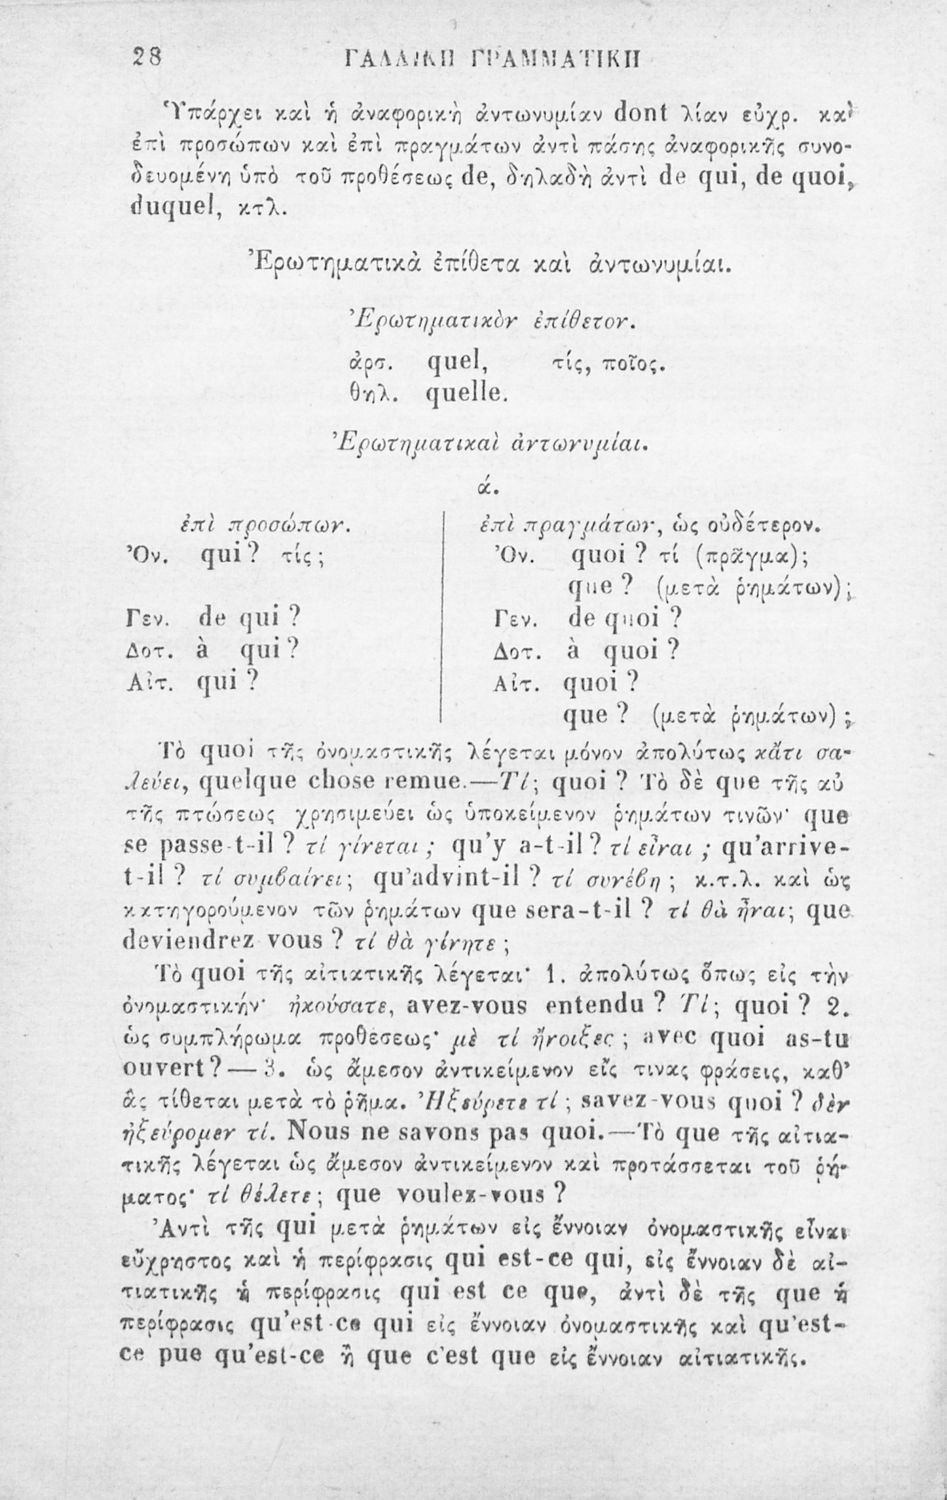 28 ΓΑΛΛΙΚΗ ΓΡΑΜΜΑΤΙΚΗ
Ὑπάρχει καὶ ἡ ἀναφορικὴ ἀντωνυμίαν dont λίαν εὐχρ. καὶ
ἐπὶ προσώπων καὶ ἐπὶ πραγμάτων ἀντὶ πάσης ἀναφορικῆς συνο-
δευομένη ὑπὸ τοῦ προθέσεως de, δηλαδὴ ἀντὶ de qui, de quoi,
duquel, κτλ.
Ἐρωτηματικὰ ἐπίθετα καὶ ἀντωνυμίαι.
Ἐρωτηματικὸν ἐπίθετον.
ἀρσ. quel, τίς, ποῖος.
θηλ. quelle.
Ἐρωτηματικαὶ ἀντωνυμίαι.
ά.
ἐπὶ προσώπων.
Ὀν. qui ? τίς ;
Γεν. de qui ?
Δοτ. à qui ?
Αἰτ. qui ?
ἐπὶ πραγμάτων, ὡς οὐδέτερον.
Ὀν. quoi ? τί (πρᾶγμα);
que ? (μετὰ ῥημάτων);
Γεν. de quoi ?
Δοτ. à quoi ?
Αἰτ. quoi ?
que ? (μετὰ ῥημάτων) ;
Τὸ quoi τῆς ὀνομαστικῆς λέγεται μόνον ἀπολύτως κᾶτι σα-
λεύει, quelque chose remue.—Τί; quoi ? Τὸ δὲ que τῆς αὐ
τῆς πτώσεως χρησιμεύει ὡς ὑποκείμενον ῥημάτων τινῶν· que
se passe-t-il ? τί γίνεται ; qu'y a-t-il ? τί εἶναι ; qu'arrive-
t-il ? τί συμβαίνει; qu'advint-il ? τί συνέβη ; κ.τ.λ. καὶ ὡς
κατηγορούμενον τῶν ῥημάτων que sera-t-il ? τί θὰ ἦναι; que
deviendrez vous ? τί θὰ γίνητε ;
Τὸ quoi τῆς αἰτιατικῆς λέγεται· 1. ἀπολύτως ὅπως εἰς τὴν
ὀνομαστικήν· ἠκούσατε, avez-vous entendu ? Τί; quoi ? 2.
ὡς συμπλήρωμα προθέσεως· μὲ τί ἤνοιξες ; avec quoi as-tu
ouvert ? — 3. ὡς ἄμεσον ἀντικείμενον εἴς τινας φράσεις, καθ'
ἃς τίθεται μετὰ τὸ ῥῆμα. Ἠξεύρετε τί ; savez-vous quoi ? δὲν
ἠξεύρομεν τί. Nous ne savons pas quoi.—Τὸ que τῆς αἰτια-
τικῆς λέγεται ὡς ἄμεσον ἀντικείμενον καὶ προτάσσεται τοῦ ῥή-
ματος· τί θέλετε; que voulez-vous ?
Ἀντὶ τῆς qui μετὰ ῥημάτων εἰς ἔννοιαν ὀνομαστικῆς εἶναι
εὔχρηστος καὶ ἡ περίφρασις qui est-ce qui, εἰς ἔννοιαν δὲ αἰ-
τιατικῆς ἡ περίφρασις qui est ce que, ἀντὶ δὲ τῆς que ἡ
περίφρασις qu'est-ce qui εἰς ἔννοιαν ὀνομαστικῆς καὶ qu'est-
ce pue qu'est-ce ἢ que c'est que εἰς ἔννοιαν αἰτιατικῆς.